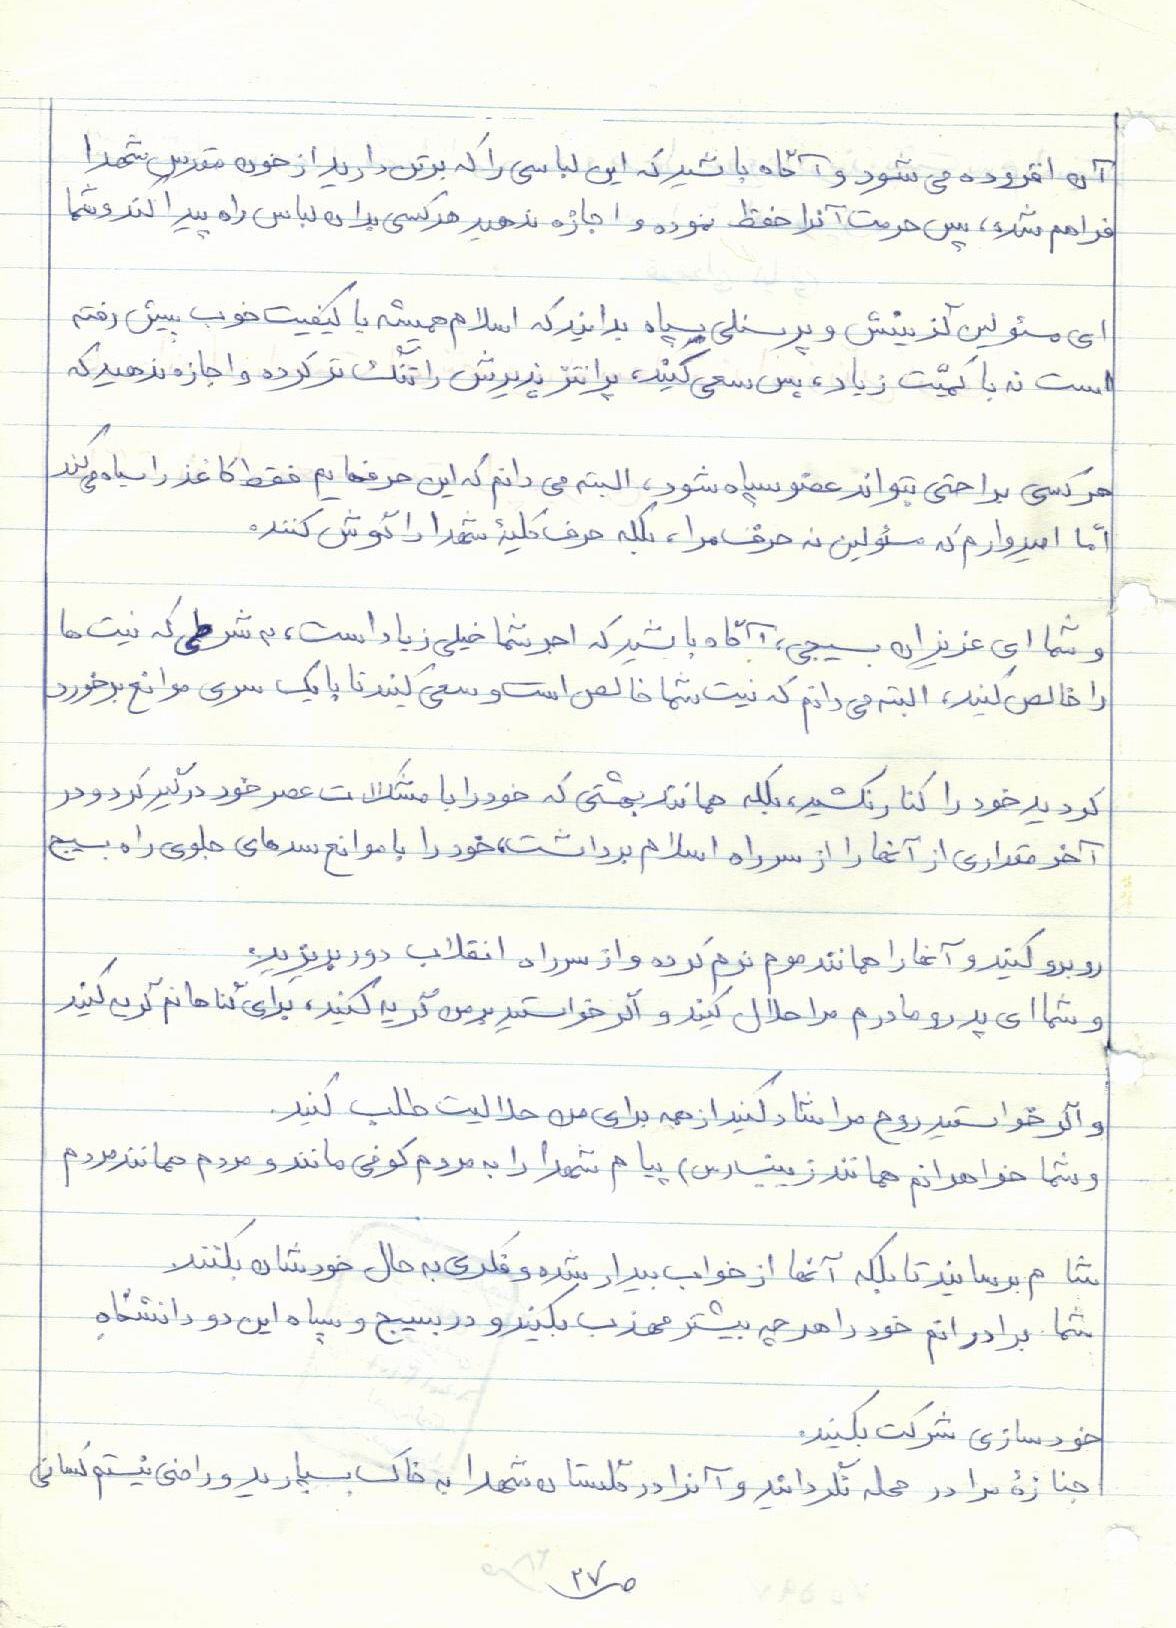 آن افزوده می شود و آگاه باشید که این لباسی را که برتن دارید از خون مقدس شهدا
فراهم شده، پس حرمت آنرا حفظ نموده و اجازه ندهید هرکسی بدان لباس راه پیدا کند و شما
ای مسئولین گزینش و پرسنلی سپاه بدانید که اسلام همیشه با کیفیت خوب پیش رفته
است نه با کمیّت زیاد، پس سعی کنید، پرانتز پذیرش را تنگ تر کرده و اجازه ندهید که
هرکسی براحتی بتواند عضو سپاه شود، البته می دانم که این حرفهایم فقط کاغذ را سیاه می کند
امّا امیدوارم که مسئولین نه حرف مرا، بلکه حرف کلیهٔ شهدا را گوش کنند.
و شما ای عزیزان بسیجی، آگاه باشید که اجر شما خیلی زیاد است، به شرطی که نیت ها
را خالص کنید، البته می دانم که نیت شما خالص است و سعی کنید تا با یک سری موانع برخورد
کردید خود را کنار نکشید، بلکه همانند بهشتی که خود را با مشکلات عصر خود درگیر کرد و در
آخر مقداری از آنها را از سر راه اسلام برداشت، خود را با موانع سدهای جلوی راه بسیج
روبرو کنید و آنها را همانند موم نرم کرده و از سر راه انقلاب دور بریزید.
و شما ای پدر و مادرم مرا حلال کنید و اگر خواستید بر من گریه کنید، برای گناهانم گریه کنید
و اگر خواستید روح مرا شاد کنید از همه برای من حلالیت طلب کنید.
و شما خواهرانم همانند زینب (س) پیام شهدا را به مردم کوفی مانند و مردم همانند مردم
شام برسانید تا بلکه آنها از خواب بیدار شده و فکری به حال خودشان بکنند.
شما برادرانم خود را هر چه بیشتر مهذب بکنید و در بسیج و سپاه این دو دانشگاهِ
خودسازی شرکت بکنید.
جنازهٔ مرا در محله نگردانید و آنرا در گلستان شهدا به خاک بسپارید و راضی نیستم کسانی
ص ۲۷